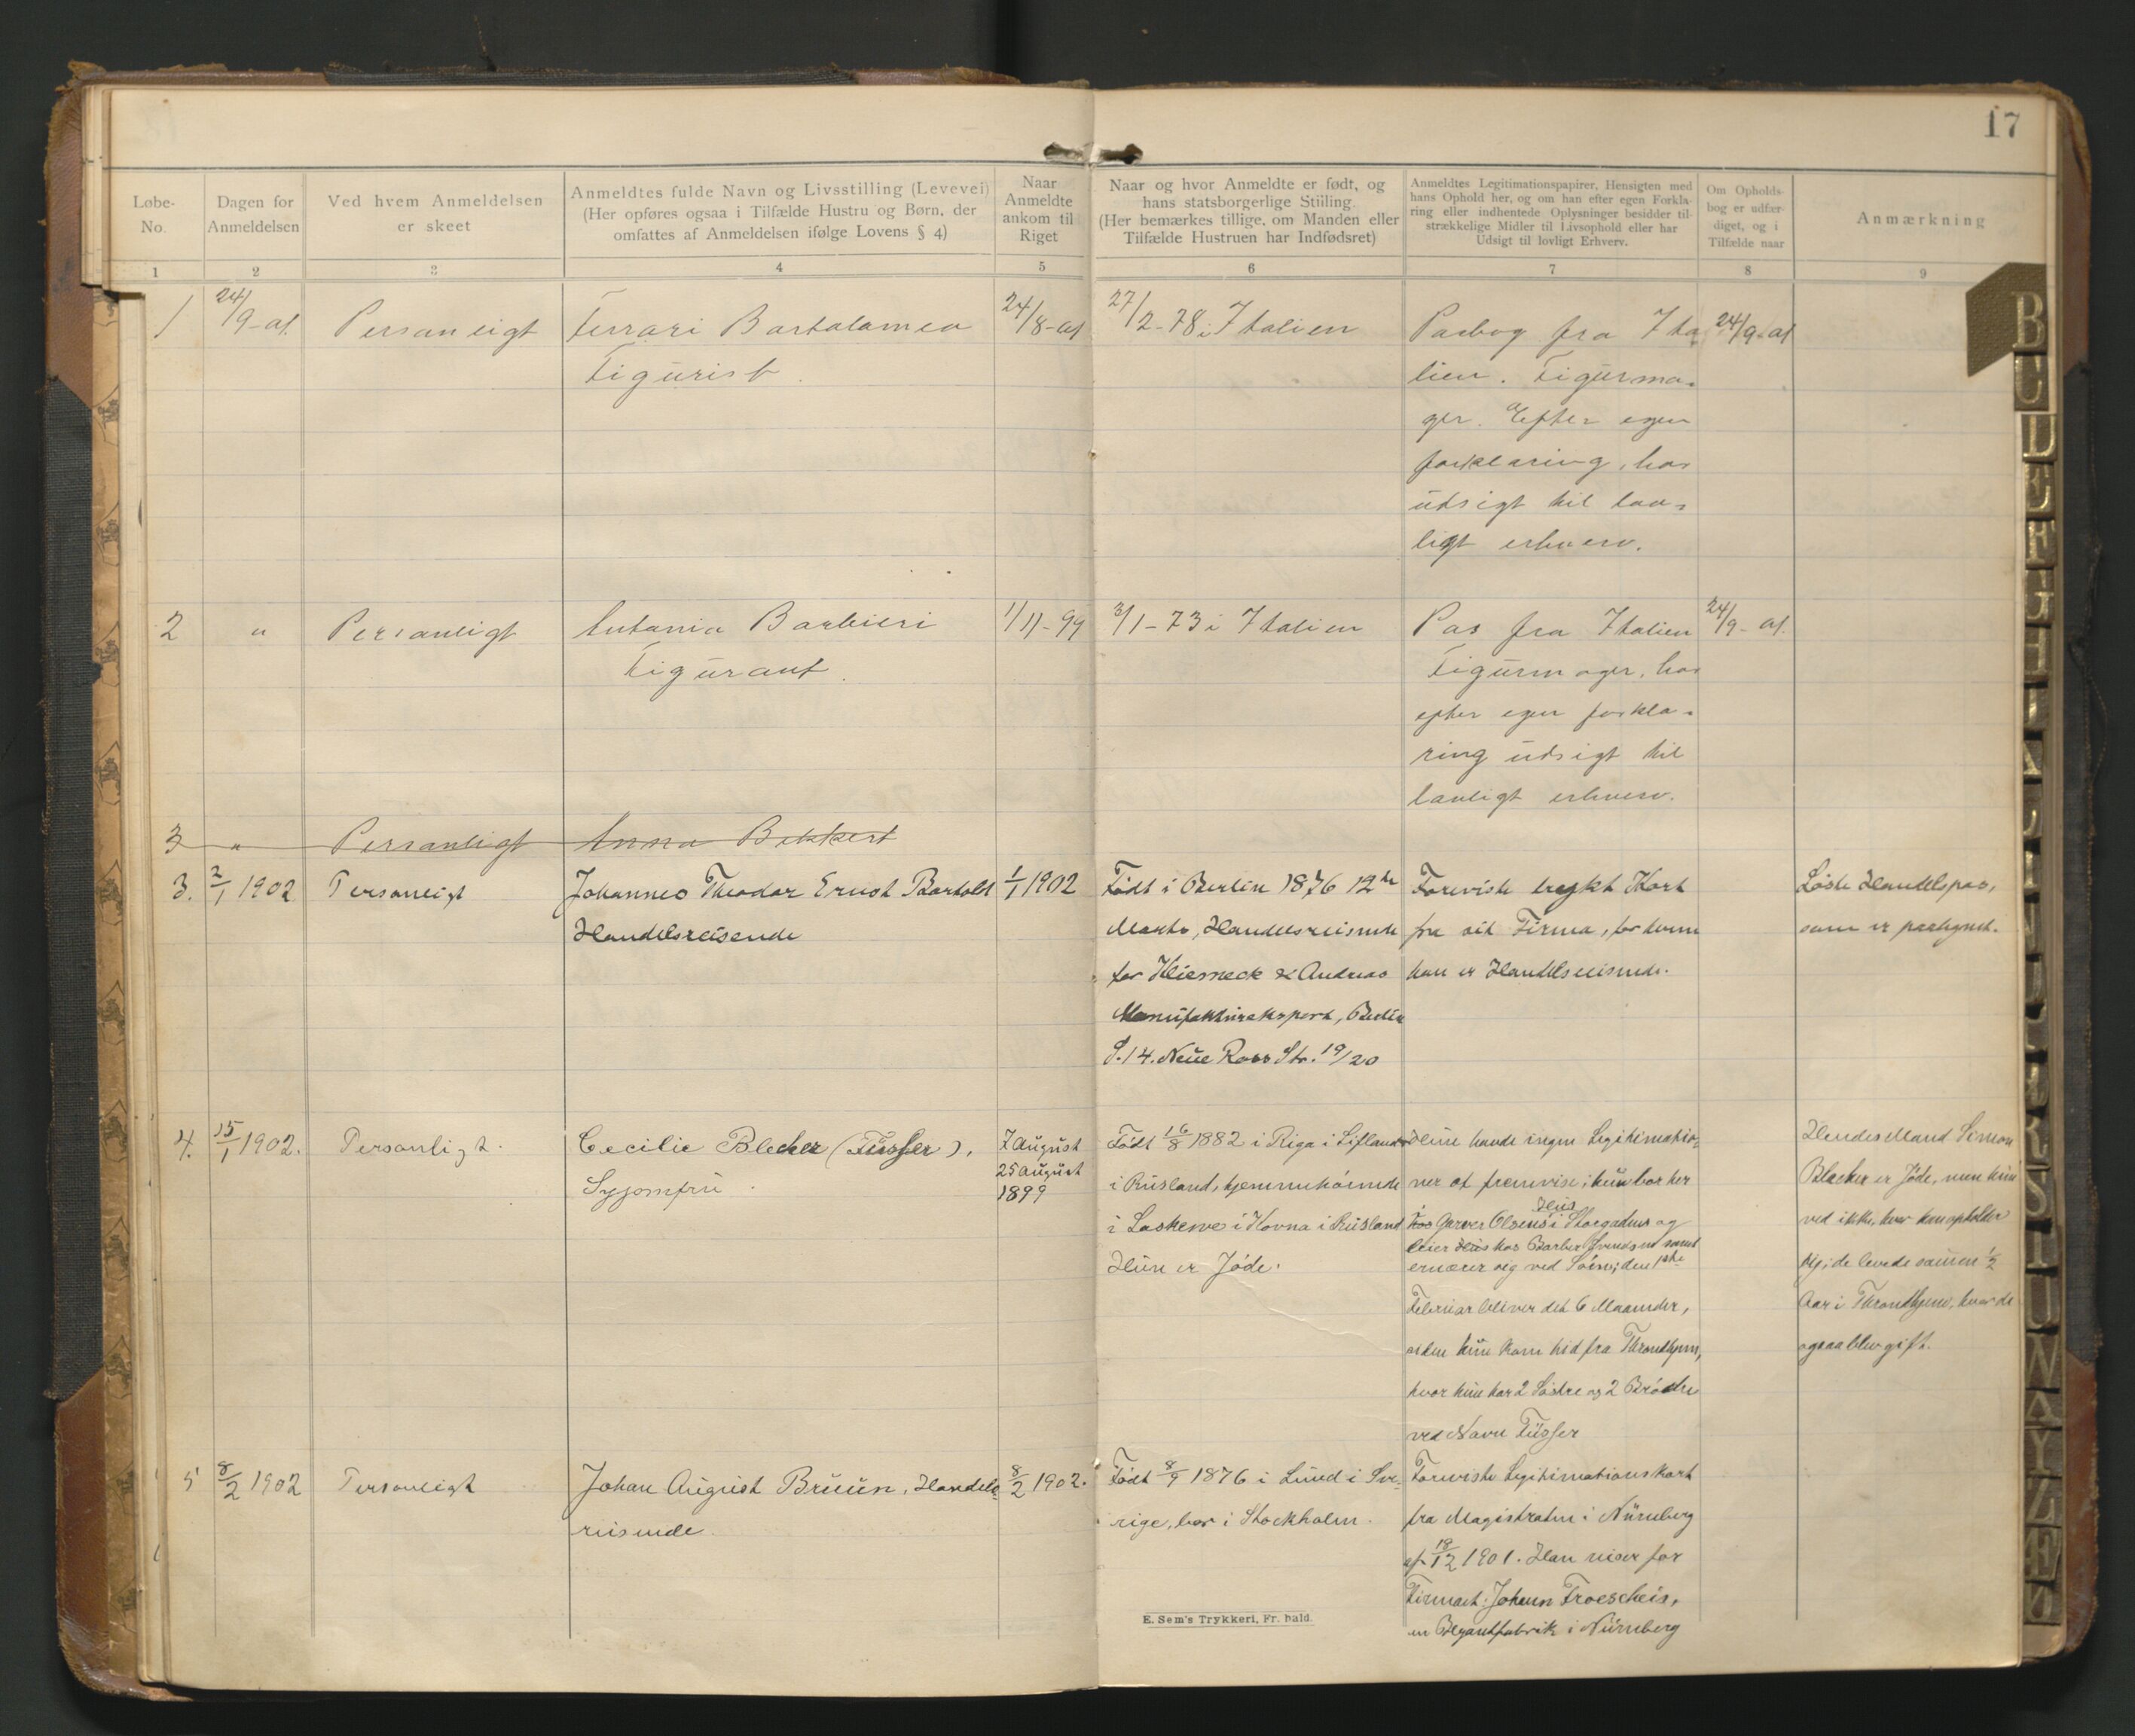 17
Løbe-
No.
Dagen for
Anmeldelsen
Ved hvem Anmeldelsen
er skeet
Anmeldtes fulde Navn og Livsstilling (Levevei)
(Her opføres ogsaa i Tilfælde Hustru og Børn, der
omfattes af Anmeldelsen ifølge Lovens § 4)
Naar
Anmeldte
ankom til
Riget
Naar og hvor Anmeldte er født, og
hans statsborgerlige Stilling
(Her bemærkes tillige, om Manden eller
Tilfælde Hustruen har Indfødsret)
Anmeldtes Legitimationspapirer, Hensigten med
hans Ophold her, og om han efter egen Forkla-
ring eller indhentede Oplysninger besidder til-
strækkelige Midler til Livsophold eller har
Udsigt til lovligt Erhverv.
Om Opholds-
bog er udfær-
diget, og i
Tilfælde naar
Anmærkning
1 2 3 4 5 6 7 8 9
1
24/9-01.
Personligt
Ferrari Bartolomeo
Figurist
24/8-01
27/2-78 i Italien
Pasbog fra Ita
lien. Figurma-
ger. Efter egen
forklaring, har
udsigt til lov-
ligt erhverv.
24/9-01
2
"
Personligt
Antonio Barbieri
Figurant
1/11-99
3/1-73 i Italien
Pas fra Italien
Figurmager, har
efter egen forkla-
ring udsigt til
lovligt erhverv.
24/9-01.
3 " Personligt Anna Bekkert
3.
2/1 1902
Personligt
Johannes Theodor Ernst Bartold
Handelsreisende
1/1 1902
Født i Berlin 1876 12te
Marts, Handelsreisende
for & Andreas
Manufaktureksport, Berlin
S.14. Neue Ross Str. 19/20
Foreviste trykt Kort
fra sit Firma, for hvem
han er Handelsreisende.
Løste Handelspas,
som er paategnet.
4.
15/1 1902.
Personligt.
Cecilie Blecher (Füsser),
Syjomfru.
7 August
25 August
1899
Født 16/8 1882 i Riga i Lifland
i Rusland, hjemmehörende
i i Kovna i Rusland
Hun er Jøde.
Hun havde ingen Legitimatio-
ner at fremvise; hun bor her
Hus
hos Garver Olsens i Storgaden og
leier Hus hos Barber Svendsen samt
ernærer seg ved Søm; den 1ste
Februar bliver det 6 Maaneder,
siden hun kom hid fra Throndhjem,
hvor hun har 2 Søstre og 2 Brødre
ved Navn Füsser
Hendes Mand Simon
Blecher er Jøde, men hun
ved ikke, hvor han opholder
sig; de levede sammen 1/2
Aar i Throndhjem, hvor de
ogsaa blev gift.
5
8/2 1902
Personligt
Johan August Bruun, Handels-
reisende.
8/2 1902.
Født 8/9 1876 i Lund i Sve-
rige, bor i Stockholm.
Foreviste Legitimationskort
fra Magistraten i Nürnberg
af 18/12 1901. Han reiser for
Firmaet: Johann Froescheis,
en Blyantfabrik i Nürnberg
E. Sem's Trykkeri, Fr. hald.
B
C
D
E
F
G
H